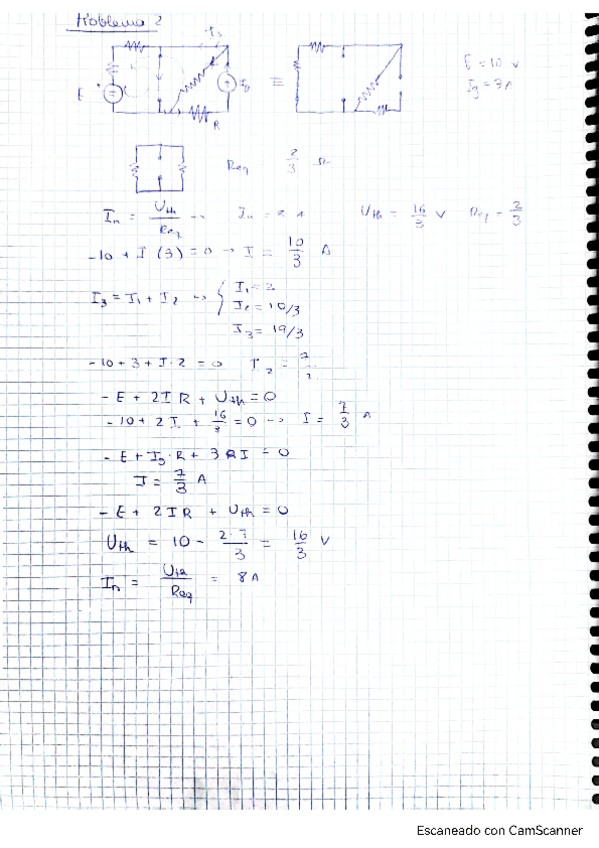 Problema 2
E
R
≡
E = 10 V
Ig = 3A
Req = 2/3 Ω
In = Uth/Req → In = 8 A Uth = 16/3 V Req = 2/3
-10 + I (3) = 0 → I = 10/3 A
I3 = I1 + I2 → { I1 = 3
I2 = 10/3
I3 = 19/3
-10 + 3 + I · 2 = 0
- E + 2 I R + Uth = 0
- 10 + 2 I + 16/3 = 0 → I = 7/3 A
- E + Ig · R + 3 R I = 0
I = 7/3 A
- E + 2 I R + Uth = 0
Uth = 10 - 2·7/3 = 16/3 V
In = Uth/Req = 8 A
Escaneado con CamScanner